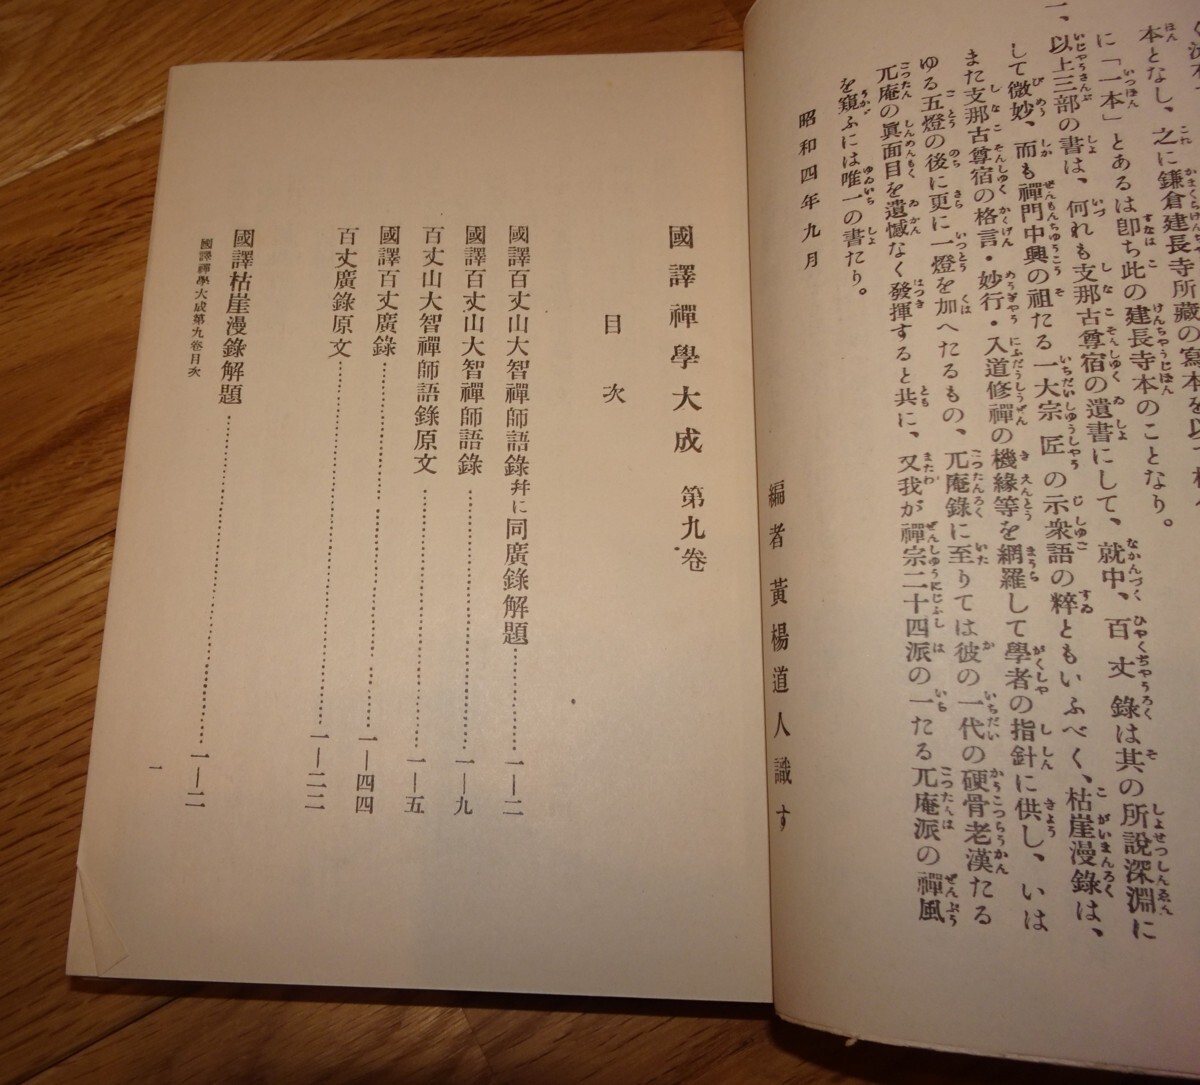 本となし、之に鎌倉建長寺所藏の寫本を以て
に「一本」とあるは卽ち此の建長寺本のことなり。
一、以上三部の書は、何れも支那古尊宿の遺書にして、就中、百丈錄は其の所說深淵に
して微妙、而も禪門中興の祖たる一大宗匠の示衆語の粹ともいふべく、枯崖漫錄は、
また支那古尊宿の格言・妙行・入道修禪の機緣等を網羅して學者の指針に供し、いは
ゆる五燈の後に更に一燈を加へたるもの、兀庵錄に至りては彼の一代の硬骨老漢たる
兀庵の眞面目を遺憾なく發揮すると共に、又我が禪宗二十四派の一たる兀庵派の禪風
を窺ふには唯一の書たり。
昭和四年九月
編者黃楊道人識す
國譯禪學大成 第九卷
目次
國譯百丈山大智禪師語錄幷に同廣錄解題…………一—二
國譯百丈山大智禪師語錄…………一—九
百丈山大智禪師語錄原文…………一—五
國譯百丈廣錄…………一—四四
百丈廣錄原文…………一—二二
國譯枯崖漫錄解題…………一—二
國譯禪學大成第九卷目次
一